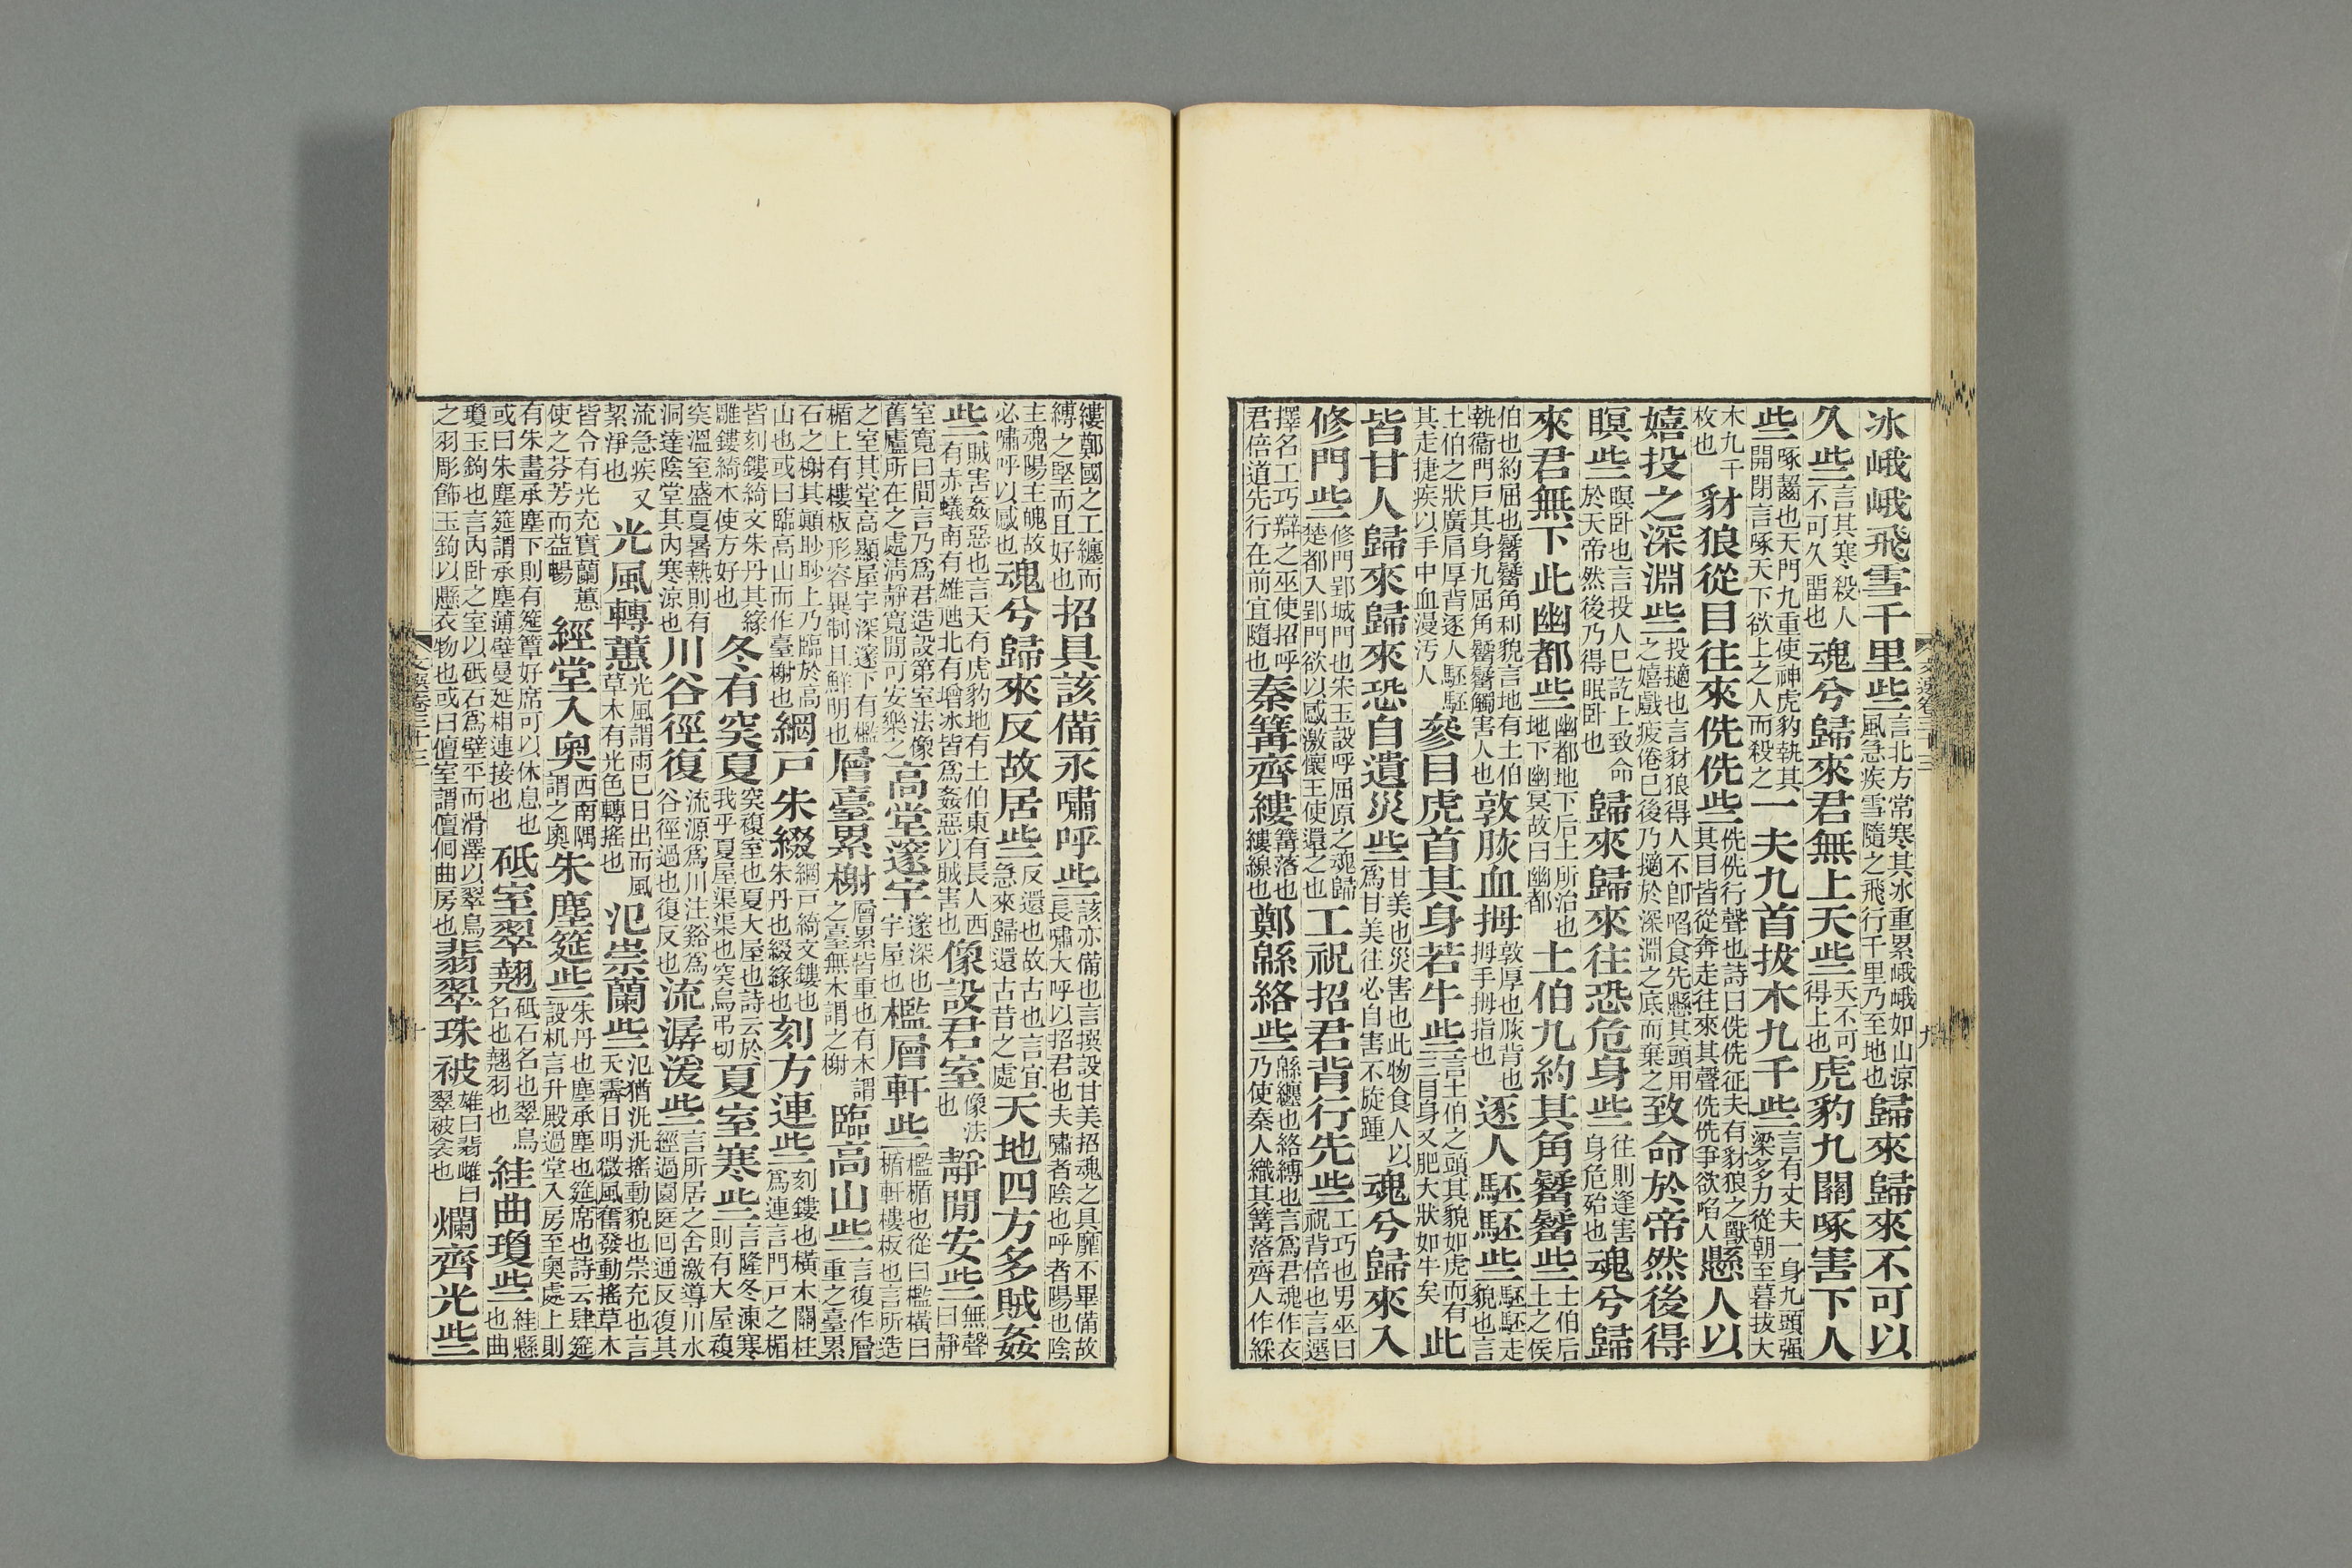 冰峨峨飛雪千里些言北方常寒其冰重累峨峨如山涼風急疾雪隨之飛行千里乃至地也歸來歸來不可以
久些言其寒殺人不可久留也魂兮歸來君無上天些天不可得上也虎豹九關啄害下人
些啄齧也天門九重使神虎豹執其開閉言啄天下欲上之人而殺之一夫九首拔木九千些言有丈夫一身九頭强梁多力從朝至暮拔大
木九千枚也豺狼從目往來侁侁些侁侁行聲也詩曰侁侁征夫有豺狼之獸其目皆從奔走往來其聲侁侁爭欲啗人懸人以
嬉投之深淵些投擿也言豺狼得人不卽啗食先懸其頭用之嬉戲疲倦已後乃擿於深淵之底而棄之致命於帝然後得
瞑些瞑卧也言投人已訖上致命於天帝然後乃得眠卧也歸來歸來往恐危身些往則逢害身危殆也魂兮歸
來君無下此幽都些幽都地下后土所治也地下幽冥故曰幽都土伯九約其角觺觺些土伯后土之侯
伯也約屈也觺觺角利貌言地有土伯執衞門戶其身九屈角觺觺觸害人也敦脄血拇敦厚也脄背也拇手拇指也逐人駓駓些駓駓走貌也言
土伯之狀廣肩厚背逐人駓駓其走捷疾以手中血漫汚人參目虎首其身若牛些言土伯之頭其貌如虎而有三目身又肥大狀如牛矣此
皆甘人歸來歸來恐自遺災些甘美也災害也此物食人以爲甘美往必自害不旋踵魂兮歸來入
修門些修門郢城門也宋玉設呼屈原之魂歸楚都入郢門欲以感激懷王使還之也工祝招君背行先些工巧也男巫曰祝背倍也言選
擇名工巧辯之巫使招呼君倍道先行在前宜隨也秦篝齊縷篝落也縷線也鄭緜絡些緜纏也絡縛也言爲君魂作衣乃使秦人織其篝落齊人作綵
縷鄭國之工纏而縛之堅而且好也招具該備永嘯呼些該亦備也言撰設甘美招魂之具靡不畢備故長嘯大呼以招君也夫嘯者陰也呼者陽也陰
主魂陽主魄故必嘯呼以感也魂兮歸來反故居些反還也故古也言宜急來歸還古昔之處天地四方多賊姦
些賊害姦惡也言天有虎豹地有土伯東有長人西有赤蟻南有雄虺北有增冰皆爲姦惡以賊害也像設君室像法也靜閒安些無聲曰靜
室寬曰閒言乃爲君造設第室法像舊廬所在之處淸靜寬閒可安樂之高堂邃宇邃深也宇屋也檻層軒些檻楯也從曰檻橫曰楯軒樓板也言所造
之室其堂高顯屋宇深邃下有檻楯上有樓板形容異制且鮮明也層臺累榭層累皆重也有木謂之臺無木謂之榭臨高山些言復作層重之臺累
石之榭其顚眇眇上乃臨於高山也或曰臨高山而作臺榭也網戶朱綴網戶綺文鏤也朱丹也綴緣也刻方連些刻鏤也橫木關柱爲連言門戶之楣
皆刻鏤綺文朱丹其緣雕鏤綺木使方好也冬有突夏突複室也夏大屋也詩云於我乎夏屋渠渠也突烏弔切夏室寒些言隆冬凍寒則有大屋複
突溫室盛夏暑熱則有洞達陰堂其內寒涼也川谷徑復流源爲川注谿爲谷徑過也復反也流潺湲些言所居之舍激導川水經過園庭囘通反復其
流急疾又絜淨也光風轉蕙光風謂雨已日出而風草木有光色轉搖也氾崇蘭些氾猶汎汎搖動貌也崇充也言天霽日明微風奮發動搖草木
皆令有光充實蘭蕙使之芬芳而益暢經堂入奧西南隅謂之奧朱塵筵些朱丹也塵承塵也筵席也詩云肆筵設机言升殿過堂入房至奧處上則
有朱畫承塵下則有簟筵好席可以休息也或曰朱塵筵謂承塵薄壁曼延相連接也砥室翠翹砥石名也翠鳥名也翹羽也絓曲瓊些絓懸也曲
瓊玉鉤也言內卧之室以砥石爲壁平而滑澤以翠鳥之羽彫飾玉鉤以懸衣物也或曰儃室謂儃佪曲房也翡翠珠被雄曰翡雌曰翠被衾也爛齊光些